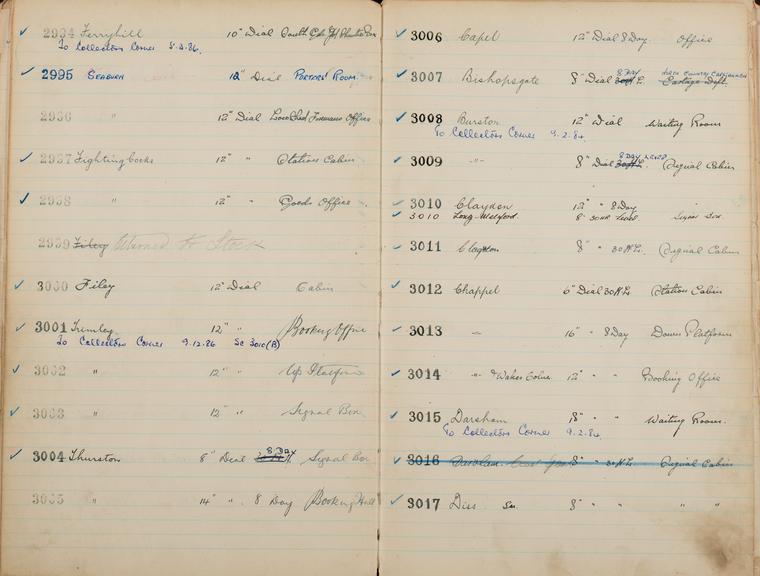 2994 Ferryhill 10" Dial South
To Collectors Corner 5.2.86.
2995 SEAHAM 12" Dial PORTERS ROOM
2996 " 12" Dial Loco Shed Foremans Office
2997 Fighting Cocks 12" " Station Cabin
2998 " 12" " Goods Office
2999 Filey returned to Stock
3000 Filey 12" Dial Cabin
3001 Trimley 12" " Booking Office
To Collectors Corner 9.12.86 Sc 3010(B)
3002 " 12" " Up Platform
3003 " 12" " Signal Box
3004 Thurston 8" Dial 8 DAY Signal Box
3005 " 14" " 8 Day Booking Hall
3006 Capel 12" Dial 8 Day Office
3007 Bishopsgate 8" Dial 8 DAY 30Hr. Cartage Dept.
3008 Burston 12" Dial Waiting Room
To Collectors Corner 9.2.84
3009 " 8" Dial 8 DAY Signal Cabin
3010 Claydon 12" " 8 Day
3010 Long Melford. 8" 30HR Signal Box.
3011 Claydon 8" " 30 Hr. Signal Cabin
3012 Chappel 6" Dial 30 Hr. Station Cabin
3013 " 16" " 8 Day Down Platform
3014 " & Wakes Colne. 12" " " Booking Office
3015 Darsham 18" " " Waiting Room.
To Collectors Corner 9.2.84
3016 8" " 30 Hr. Signal Cabin
3017 Diss 8" " " "